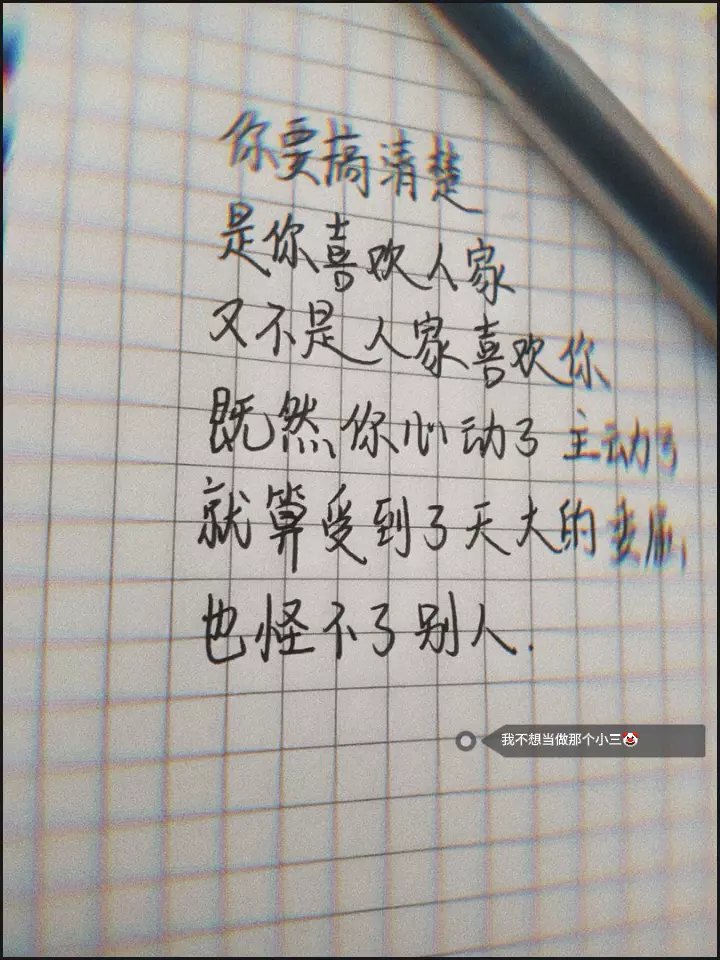 你要搞清楚
是你喜欢人家
又不是人家喜欢你
既然你心动了 主动了
就算受到了天大的委屈,
也怪不了别人.
我不想当做那个小三🤡